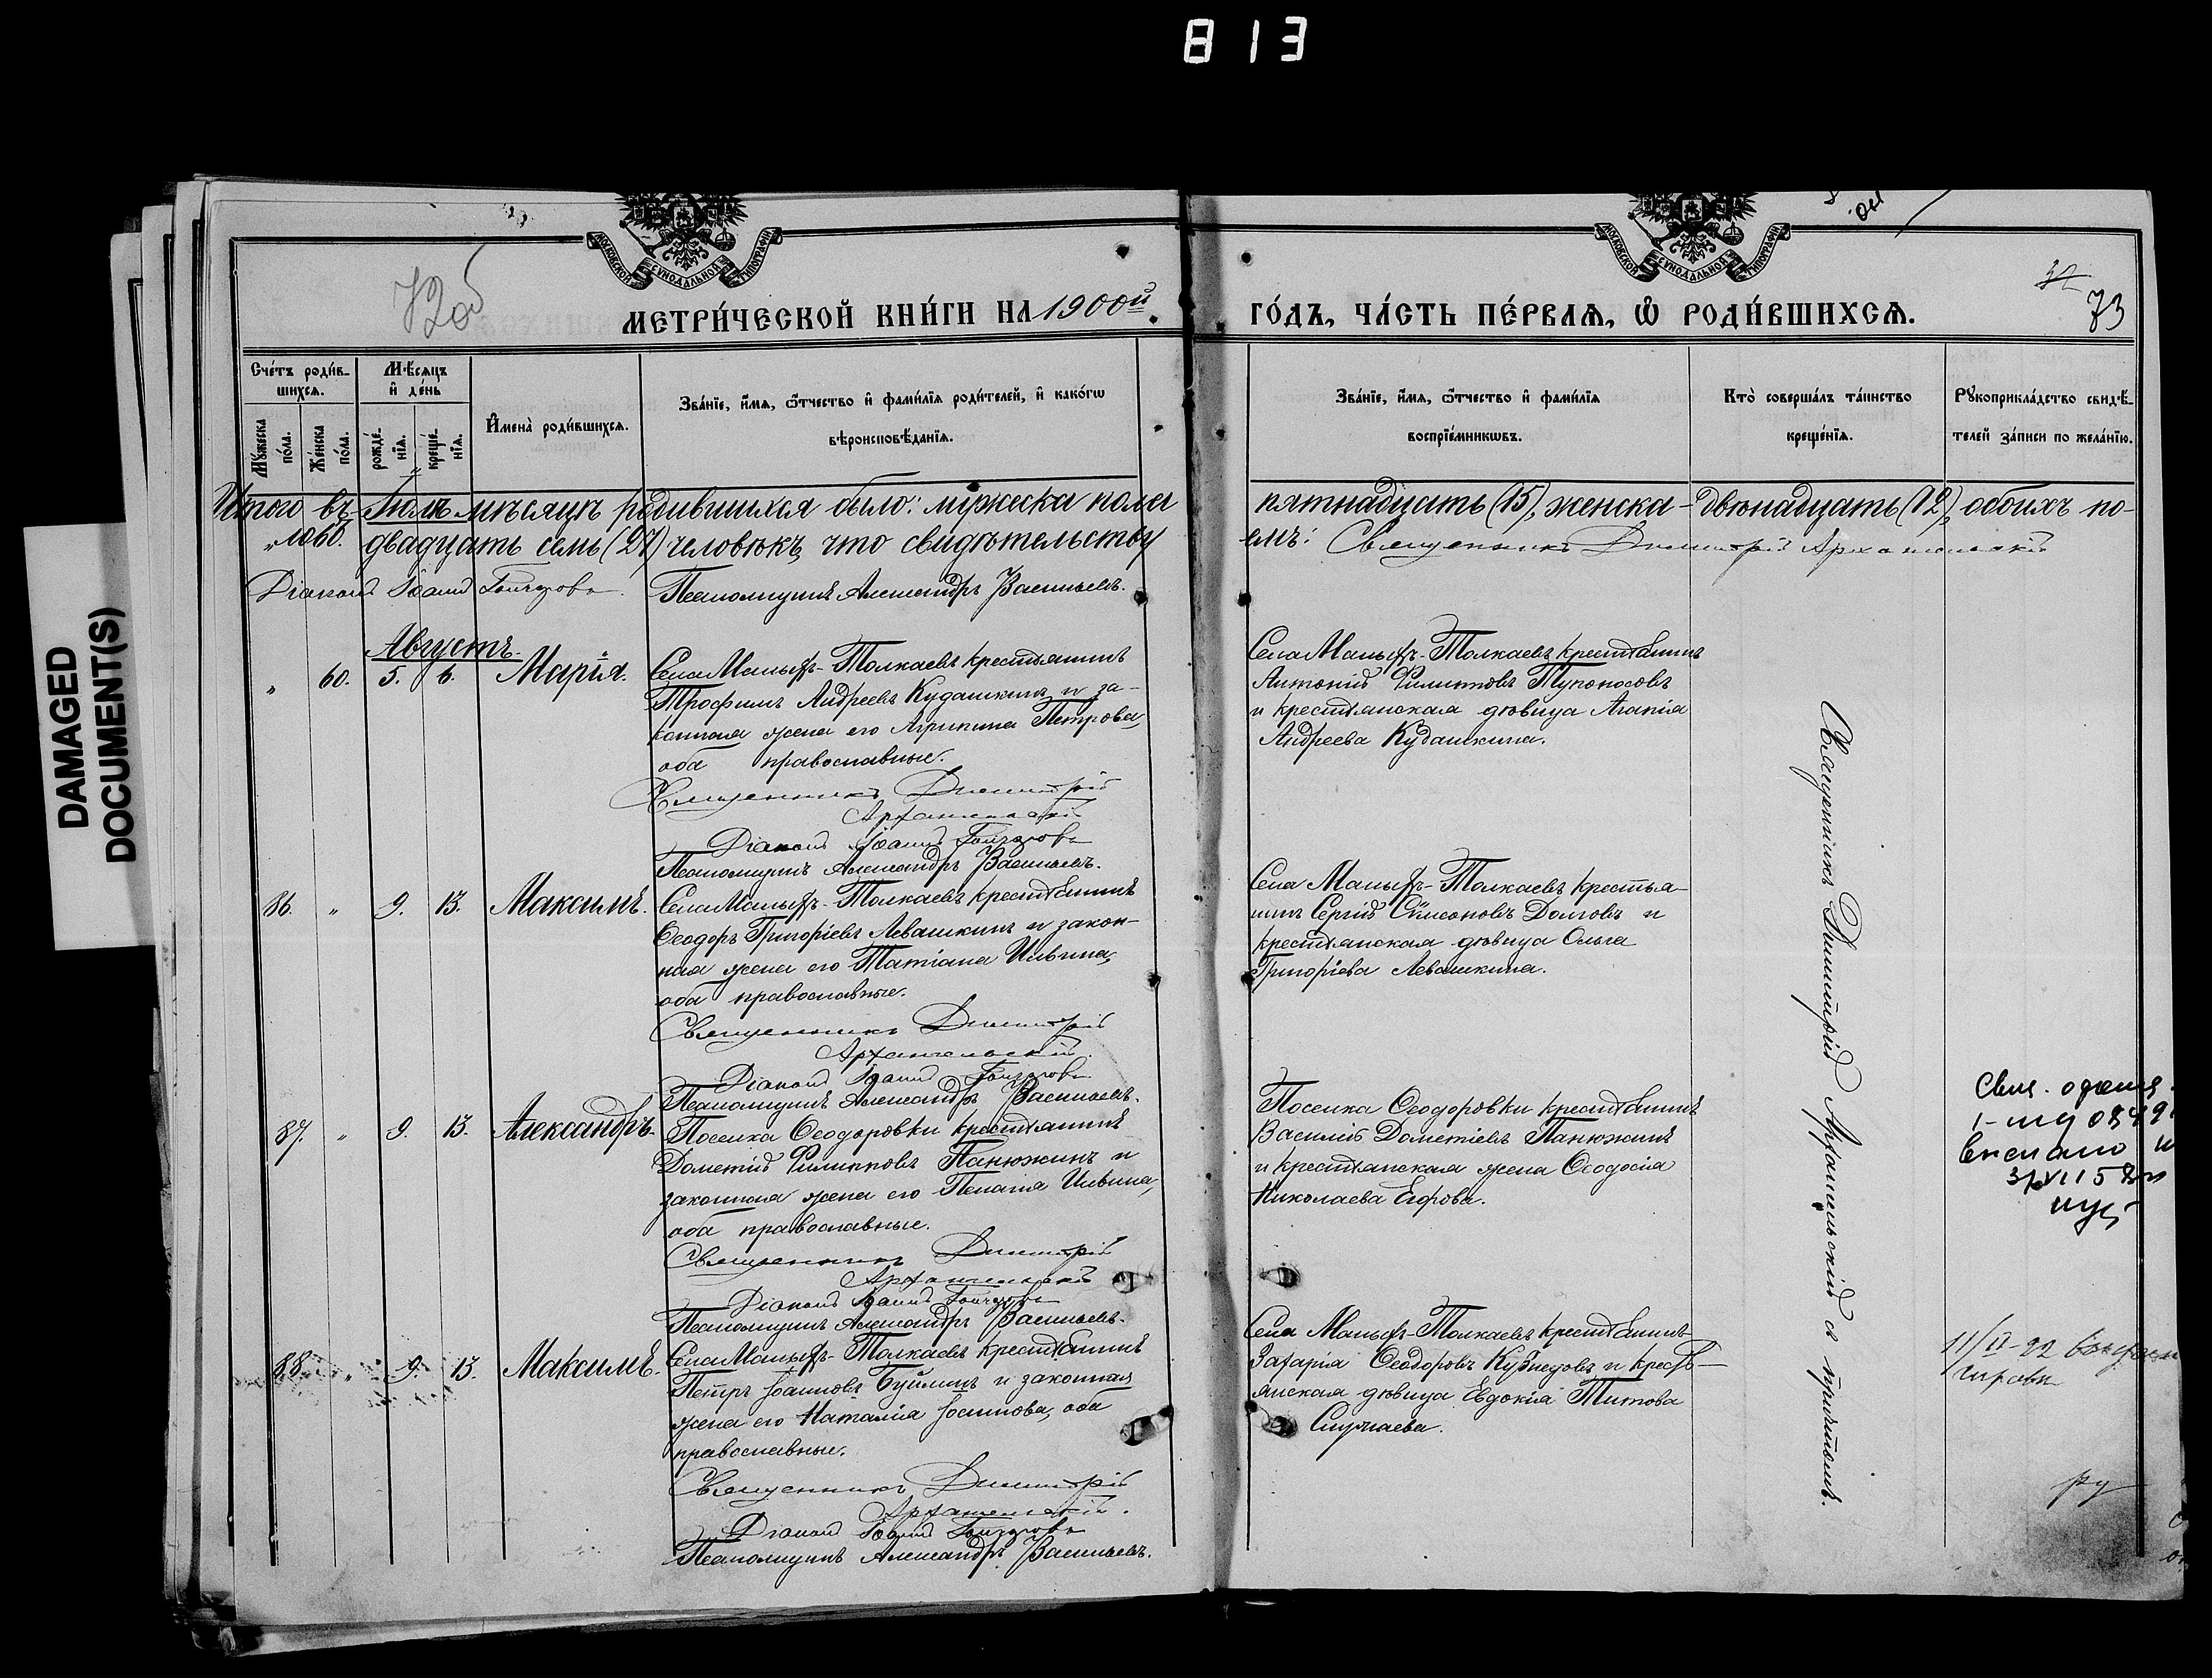 813
DAMAGED
DOCUMENT(S)
МОСКОВСКОЙ СУНОДАЛЬНОЙ ТИПОГРАФІИ
МОСКОВСКОЙ СУНОДАЛЬНОЙ ТИПОГРАФІИ
72об
73
МЕТРИ́ЧЕСКОЙ КНИ́ГИ НА 1900й
ГО́ДЪ, ЧА́СТЬ ПЕ́РВАЯ, Ѽ РОДИ́ВШИХСЯ.
Сче́тъ роди́в-
шихся.
Му́жеска по́ла.
Же́нска по́ла.
Мѣ́сяцъ
и де́нь
рожде́нія.
креще́нія.
Имена̀ роди́вшихся.
Зва́ніе, и́мя, ѻ́тчество и фами́лія роди́телей, и како́гѡ
вѣроисповѣ́данія.
Зва́ніе, и́мя, ѻ́тчество и фами́лія
воспріе́мникѡвъ.
Кто̀ соверша́лъ та́инство
креще́нія.
Рукоприкла́дство свидѣ́-
телей за́писи по жела́нію.
Итого въ Іюлѣ мѣсяцѣ родившихся было: мужеска пола
пятнадцать (15), женска - двѣнадцать (12), обоихъ по-
ловъ двадцать семь (27) человѣкъ, что свидѣтельству
емъ: Священникъ Димитрій Архангельскій
Діаконъ Іоаннъ
Псаломщикъ Александръ Васильевъ.
Августъ.
" 60. 5. 6. Марія.
Села Малыхъ-Толкаевъ крестьянинъ
Трофимъ Андреевъ Кудашкинъ и за-
конная жена его Агрипина Петрова,
оба православные.
Священникъ Димитрій
Архангельскій
Діаконъ Іоаннъ
Псаломщикъ Александръ Васильевъ.
Села Малыхъ-Толкаевъ крестьянинъ
Антоній Филипповъ Тупоносовъ
и крестьянская дѣвица Агапія
Андреева Кудашкина.
86. " 9. 13. Максимъ.
Села Малыхъ-Толкаевъ крестьянинъ
Ѳеодоръ Григорьевъ Левашкинъ и закон-
ная жена его Татіана Ильина,
оба православные.
Священникъ Димитрій
Архангельскій.
Діаконъ Іоаннъ
Псаломщикъ Александръ Васильевъ.
Села Малыхъ-Толкаевъ крестья-
нинъ Сергій Долговъ и
крестьянская дѣвица Ольга
Григоріева Левашкина.
87. " 9. 13. Александръ.
Поселка Ѳеодоровки крестьянинъ
Дометій Филипповъ Панюжинъ и
законная жена его Пелагія Ильина,
оба православные.
Священникъ Димитрій
Архангельскій
Діаконъ Іоаннъ
Псаломщикъ Александръ Васильевъ.
Поселка Ѳеодоровки крестьянинъ
Василій Дометіевъ Панюжинъ
и крестьянская жена Ѳеодосія
Николаева Егорова.
88. " 9. 13. Максимъ.
Села Малыхъ-Толкаевъ крестьянинъ
Петръ Іоанновъ Буймінъ и законная
жена его Наталія Іоаннова, оба
православные.
Священникъ Димитрій
Архангельскій.
Діаконъ Іоаннъ
Псаломщикъ Александръ Васильевъ.
Села Малыхъ-Толкаевъ крестьянинъ
Захарія Ѳеодоровъ Кузнецовъ и кресть-
янская дѣвица Евдокія Титова
Священникъ Димитрій Архангельскій съ причтомъ.